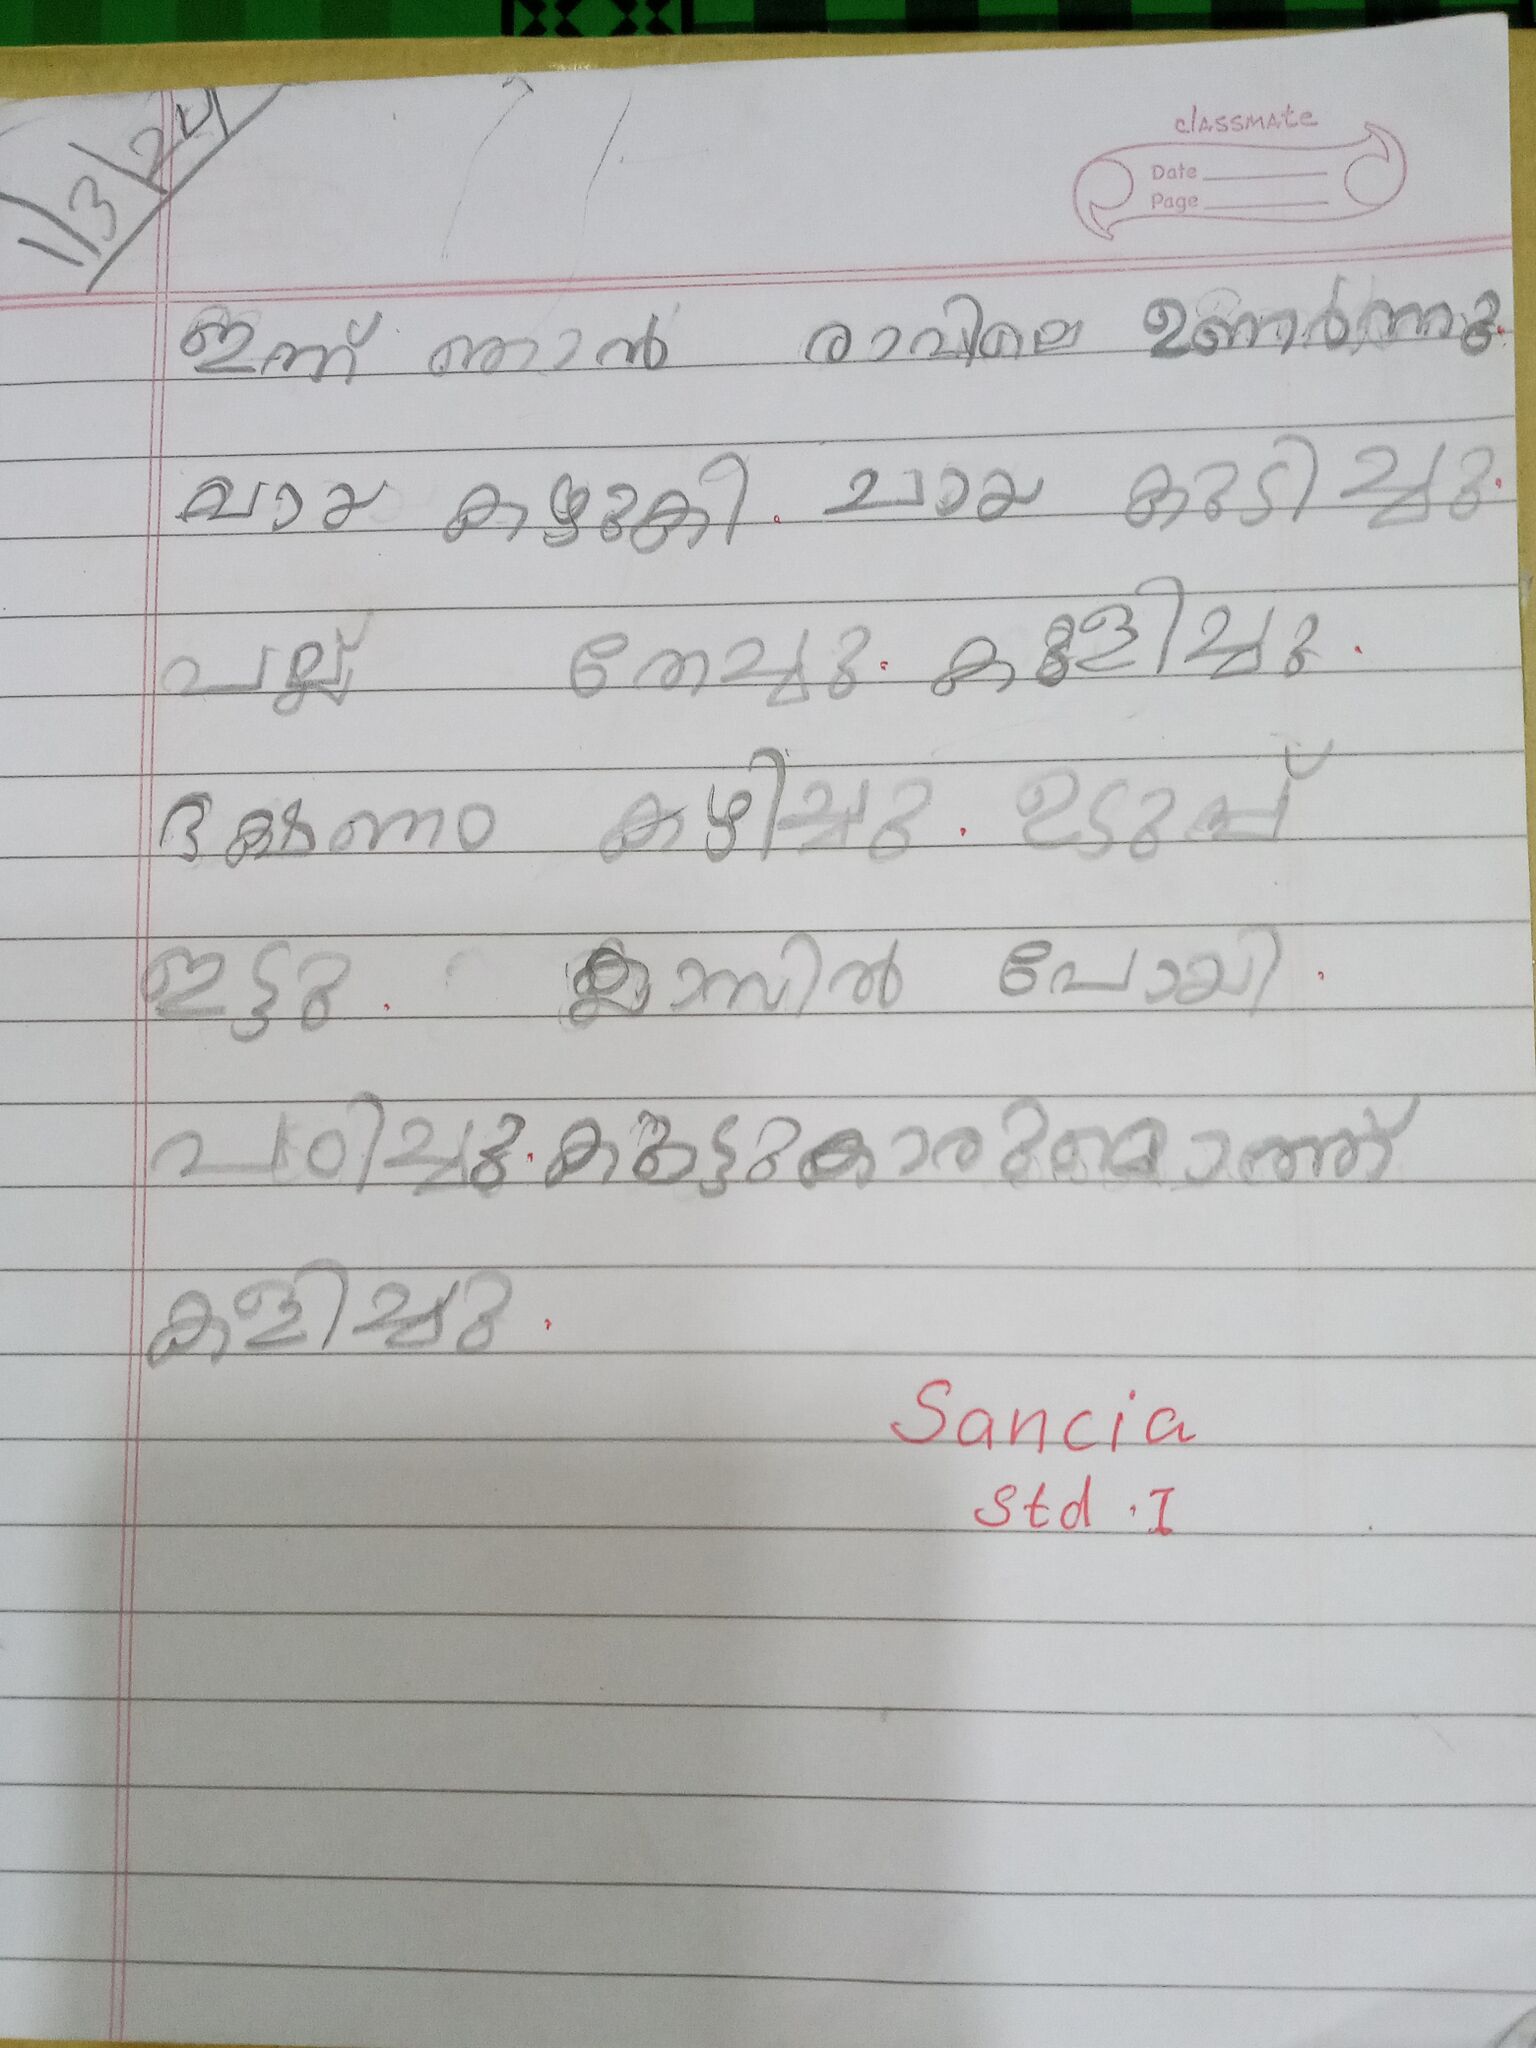 1/3/24
classmate
Date
Page
ഇന്ന് ഞാൻ രാവിലെ ഉണർന്നു.
വായ കഴുകി. ചായ കുടിച്ചു.
പല്ല് തേച്ചു. കുളിച്ചു.
ഭക്ഷണം കഴിച്ചു. ഉടുപ്പ്
ഇട്ടു. ക്ലാസിൽ പോയി.
പഠിച്ചു. കൂട്ടുകാരുമൊത്ത്
കളിച്ചു.
Sancia
Std. I